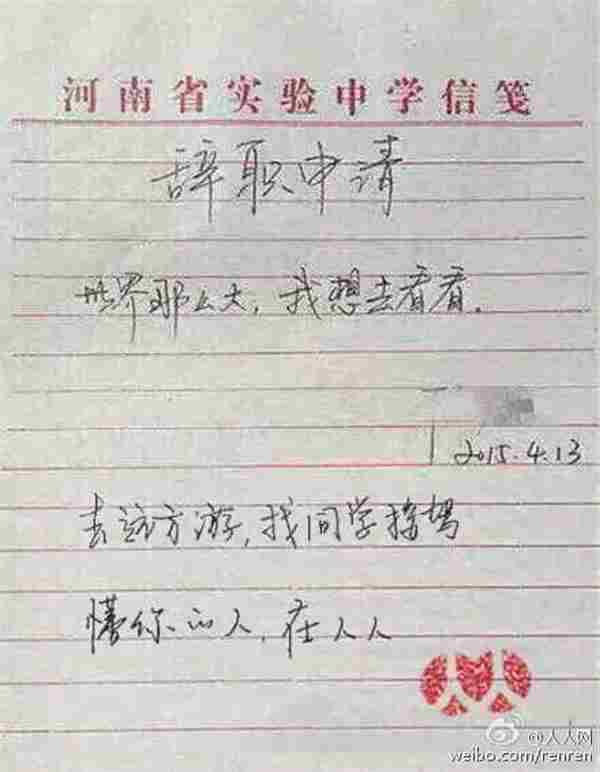 河南省实验中学信笺
辞职申请
世界那么大，我想去看看.
2015.4.13
去远方游，找同学接驾
懂你的人，在人人
@人人网
weibo.com/renren